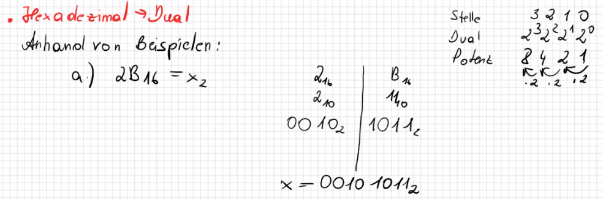 • Hexadezimal → Dual
Anhand von Beispielen:
a.) 2B₁₆ = x₂
2₁₆ | B₁₆
2₁₀ | 11₁₀
0010₂ | 1011₂
x = 0010 1011₂
Stelle 3 2 1 0
Dual 2³ 2² 2¹ 2⁰
Potenz 8 4 2 1
·2 ·2 ·2